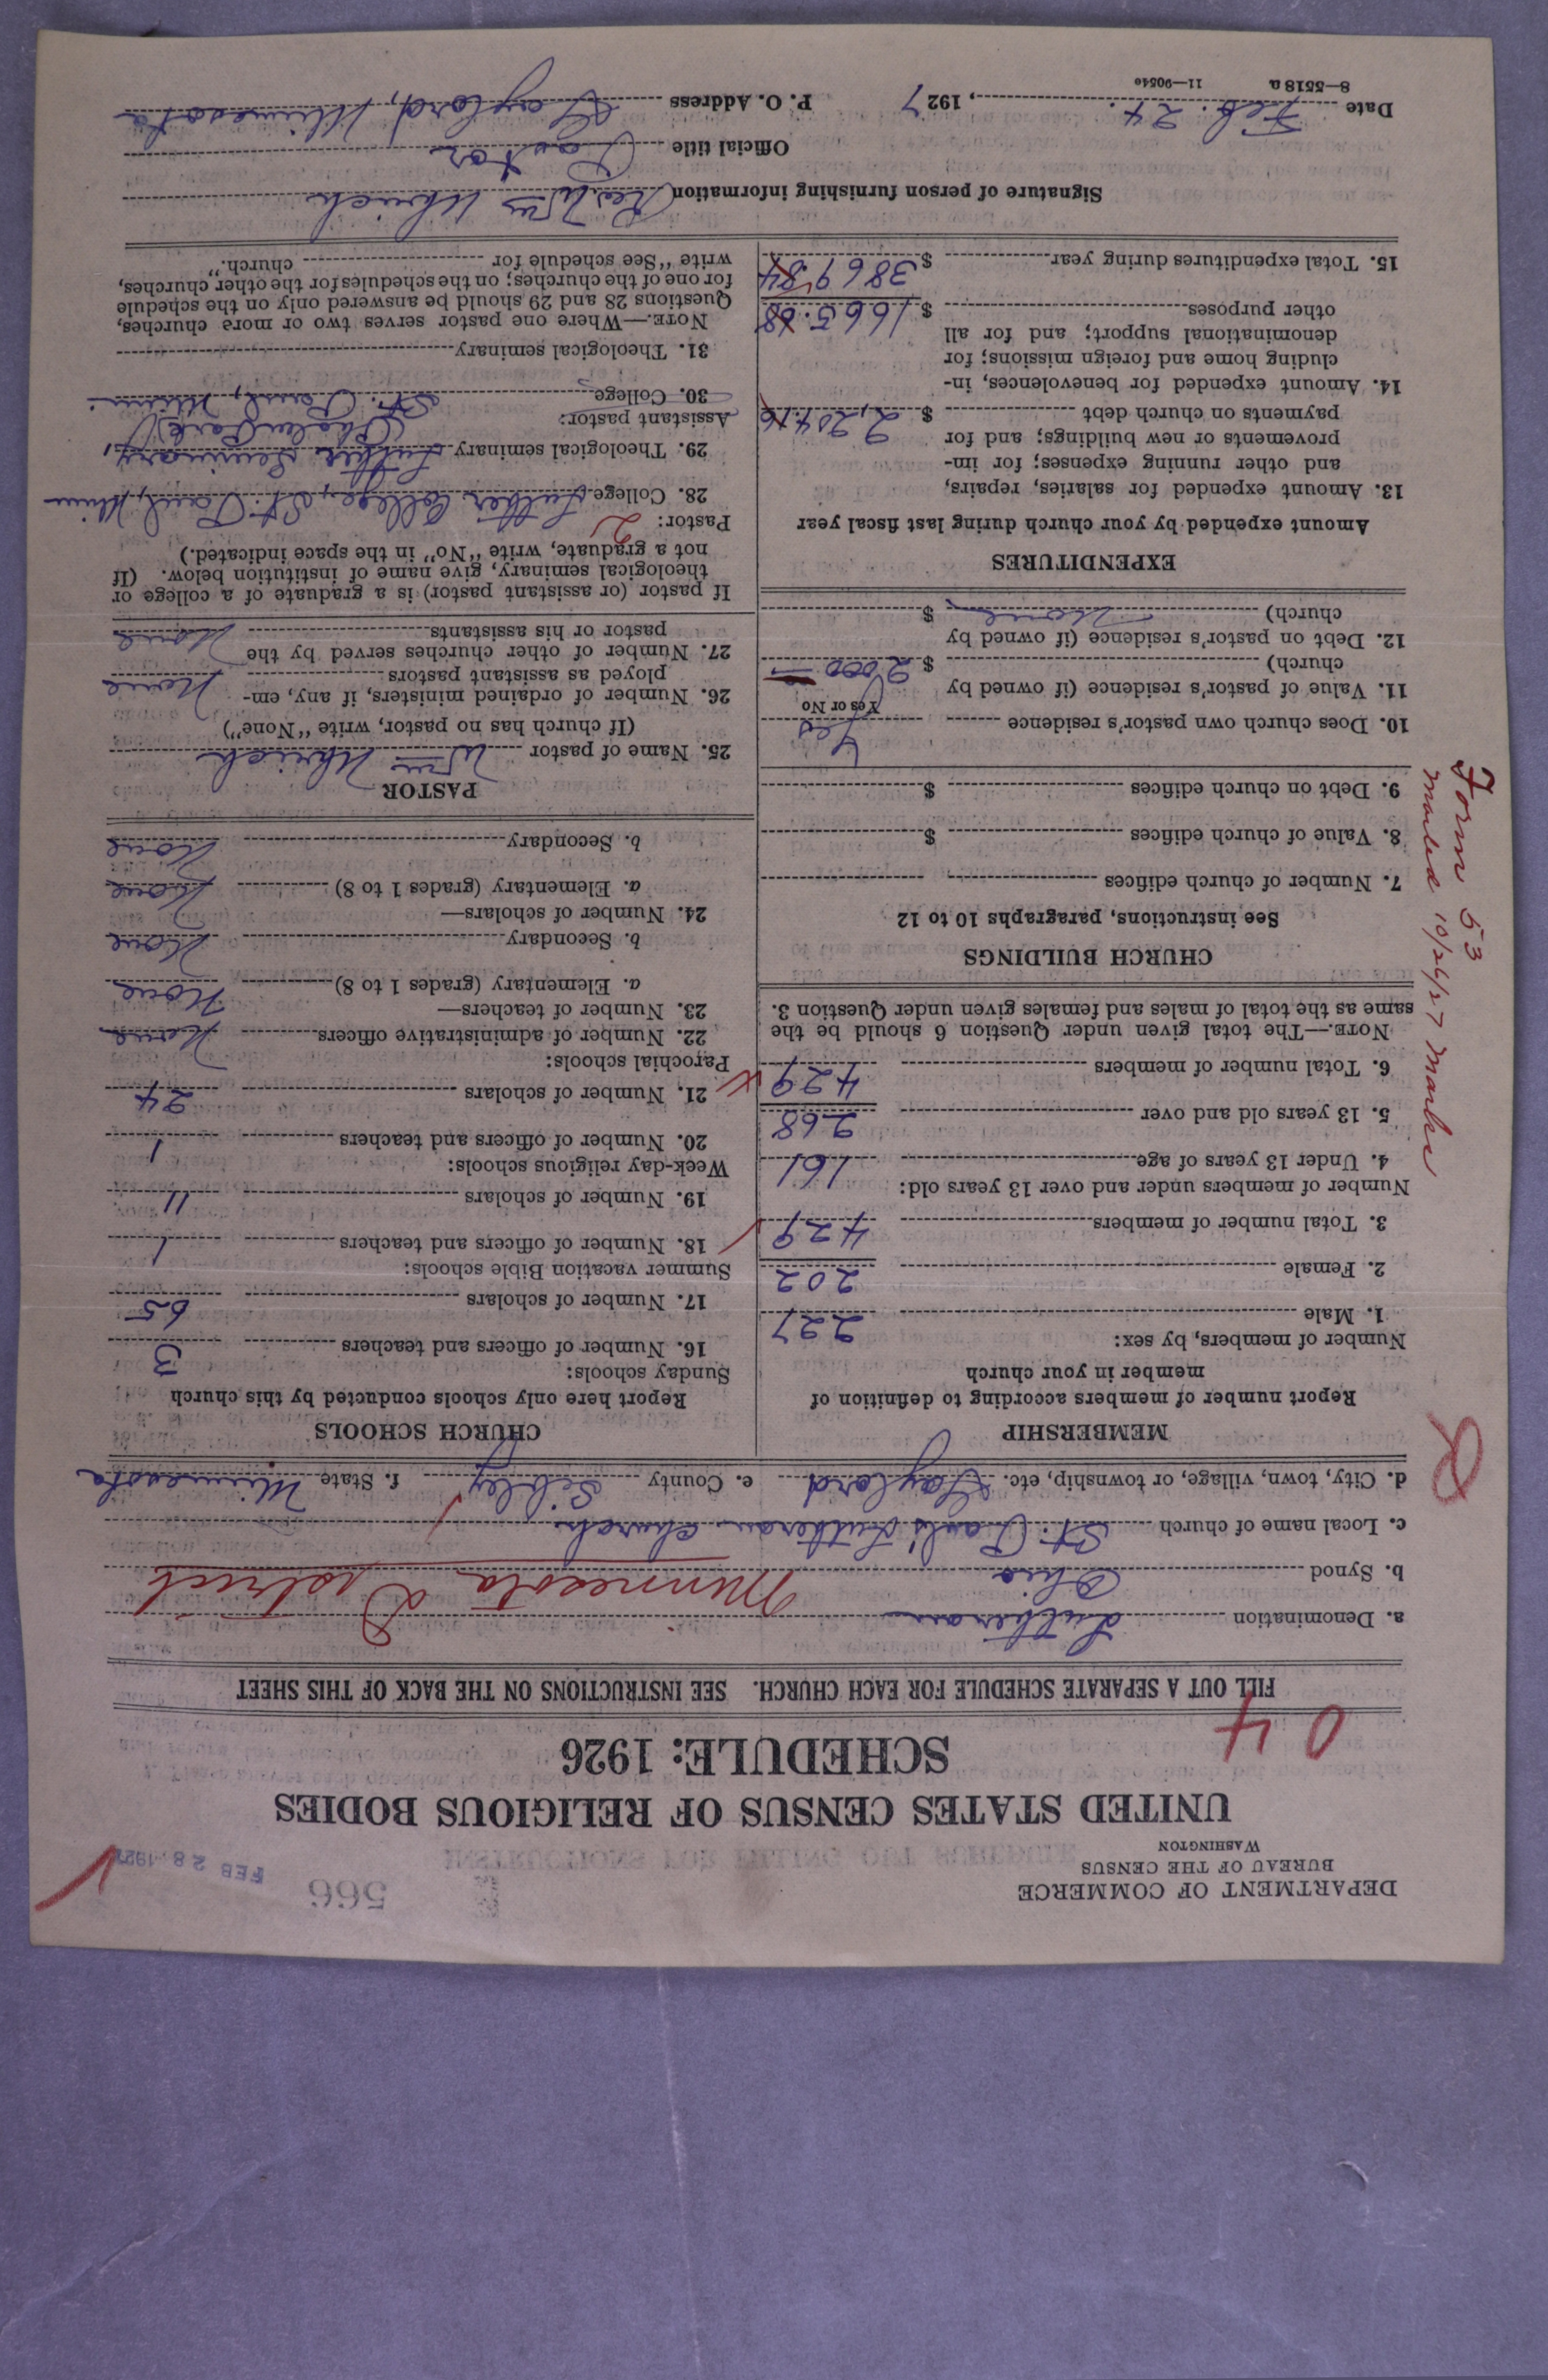 DEPARTMENT OF COMMERCE
BUREAU OF THE CENSUS
WASHINGTON
566
FEB 28 1927
UNITED STATES CENSUS OF RELIGIOUS BODIES
SCHEDULE: 1926
04
FILL OUT A SEPARATE SCHEDULE FOR EACH CHURCH. SEE INSTRUCTIONS ON THE BACK OF THIS SHEET
a. Denomination Lutheran
b. Synod Ohio Minnesota District
c. Local name of church St. Paul's Lutheran church
d. City, town, village, or township, etc. Gaylord e. County Sibley f. State Minnesota
MEMBERSHIP
Report number of members according to definition of
member in your church
Number of members, by sex:
1. Male 227
2. Female 202
3. Total number of members 429
Number of members under and over 13 years old:
4. Under 13 years of age 161
5. 13 years old and over 268
6. Total number of members 429
NOTE.—The total given under Question 6 should be the
same as the total of males and females given under Question 3.
CHURCH BUILDINGS
See instructions, paragraphs 10 to 12
7. Number of church edifices
8. Value of church edifices $
9. Debt on church edifices $
10. Does church own pastor's residence Yes
Yes or No
11. Value of pastor's residence (if owned by
church) $ 2000
12. Debt on pastor's residence (if owned by
church) None $
EXPENDITURES
Amount expended by your church during last fiscal year
13. Amount expended for salaries, repairs,
and other running expenses; for im-
provements or new buildings; and for
payments on church debt $ 2,204.16
14. Amount expended for benevolences, in-
cluding home and foreign missions; for
denominational support; and for all
other purposes $ 1665.68
15. Total expenditures during year $ 3869.84
CHURCH SCHOOLS
Report here only schools conducted by this church
Sunday schools:
16. Number of officers and teachers 3
17. Number of scholars 65
Summer vacation Bible schools:
18. Number of officers and teachers 1
19. Number of scholars 11
Week-day religious schools:
20. Number of officers and teachers 1
21. Number of scholars 24
Parochial schools:
22. Number of administrative officers None
23. Number of teachers—
a. Elementary (grades 1 to 8) None
b. Secondary None
24. Number of scholars—
a. Elementary (grades 1 to 8) None
b. Secondary None
PASTOR
25. Name of pastor Wm Uhrich
(If church has no pastor, write "None")
26. Number of ordained ministers, if any, em-
ployed as assistant pastors None
27. Number of other churches served by the
pastor or his assistants None
If pastor (or assistant pastor) is a graduate of a college or
theological seminary, give name of institution below. (If
not a graduate, write "No" in the space indicated.)
Pastor: 2
28. College Luther College, St. Paul, Minn
29. Theological seminary Luther Seminary,
(Phalen Park)
Assistant pastor:
30. College St. Paul, Minn.
31. Theological seminary
NOTE.—Where one pastor serves two or more churches,
Questions 28 and 29 should be answered only on the schedule
for one of the churches; on the schedules for the other churches,
write "See schedule for church."
Signature of person furnishing information Rev Wm Uhrich
Official title Pastor
Date Feb. 24., 1927 P. O. Address Gaylord, Minnesota
8—5518 a 11—9054a
Form 53
mailed 10/26/27